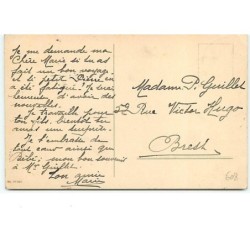 Je me demande ma
Chère Marie si tu as
fait un bon voyage
et si petit Pierre en
a été fatigué. Je serai
heureuse d'avoir des
nouvelles.
Je travaille pour
ton fils, bientôt tu
auras une surprise.
Je t'embrasse de
tout cœur ainsi que
Bébé, mon bon souvenir
à Mr Guillet.
Ton amie
Marie
Madame P. Guillet
52 Rue Victor Hugo
Brest